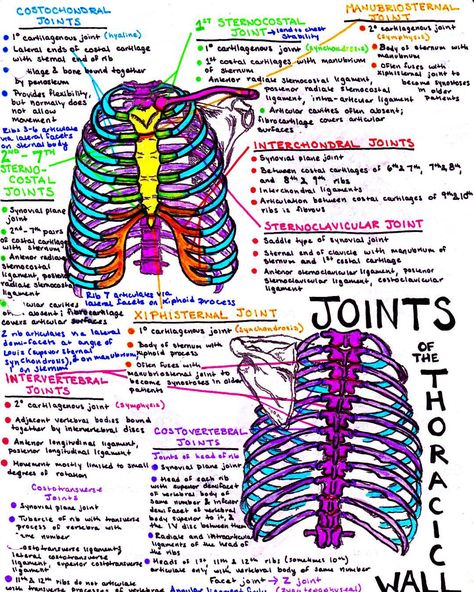 COSTOCHONDRAL
JOINTS
1° cartilagenous joint (hyaline)
Lateral ends of costal cartilage
with sternal end of rib
cartilage and bone bound together
by periosteum
Provides flexibility
but normally does
not allow
movement
Ribs 3-6 articulate
via lateral facets
on sternal body
2ND - 7TH
STERNO-
COSTAL
JOINTS
Synovial plane
joint
2nd - 7th pairs
of costal cartilage
with sternum
Anterior radiate
sternocostal
ligament, posterior
radiate sternocostal
ligament
cavities often
absent; fibrocartilage
covers articular surfaces
2 rib articulates via lateral
demi-facets at angle of
Louis (superior sternal
synchondrosis), on manubrium,
on sternum
1ST STERNOCOSTAL
JOINT → lend to chest
stability
1° cartilagenous joint (synchondrosis)
1st costal cartilages with manubrium
of sternum
Anterior radial sternocostal ligament,
posterior radiate sternocostal
ligament, intra-articular ligament
Articular cavities often absent;
fibrocartilage covers articular
surfaces
MANUBRIOSTERNAL
JOINT
2° cartilagenous joint
(symphysis)
Body of sternum with
manubrium
Often fuses with
xiphisternal joint to
become synostosis
in older
patients
INTERCHONDRAL JOINTS
Synovial plane joint
Between costal cartilages of 6th & 7th, 7th & 8th,
and 8th & 9th ribs
Interchondral ligaments
Articulation between costal cartilages of 9th & 10th
ribs is fibrous
STERNOCLAVICULAR JOINT
Saddle type of synovial joint
Sternal end of clavicle with manubrium of
sternum and 1st costal cartilage
Anterior sternoclavicular ligament, posterior
sternoclavicular ligament, costoclavicular
ligament
Rib 7 articulates via
lateral facets on xiphoid process
XIPHISTERNAL JOINT
1° cartilagenous joint (synchondrosis)
Body of sternum with
xiphoid process
Often fuses with
manubriosternal joint to
become synostoses in older
patients
JOINTS
OF
THE
THORACIC
WALL
INTERVERTEBRAL
JOINTS
2° cartilagenous joint (symphysis)
Adjacent vertebral bodies bound
together by intervertebral discs
Anterior longitudinal ligament,
posterior longitudinal ligament
Movement mostly limited to small
degrees of rotation
Costotransverse
Joints
Synovial plane joint
Tubercle of rib with transverse
process of vertebra with
same number
costotransverse ligament,
lateral costotransverse
ligament, superior costotransverse
ligament
11th & 12th ribs do not articulate
with transverse processes of vertebrae
COSTOVERTEBRAL
JOINTS
Joints of head of rib
Synovial plane joint
Head of each rib
with superior demifacet
of vertebral body of
same number & inferior
demi facet of vertebral
body superior to it, &
the IV disc between them
Radiate and intraarticular
ligaments of the head of
the ribs
Heads of 1st, 11th & 12th ribs (sometimes 10th)
articulate only with vertebral body of same number
Facet joint → Z joint
(zygapophyseal)